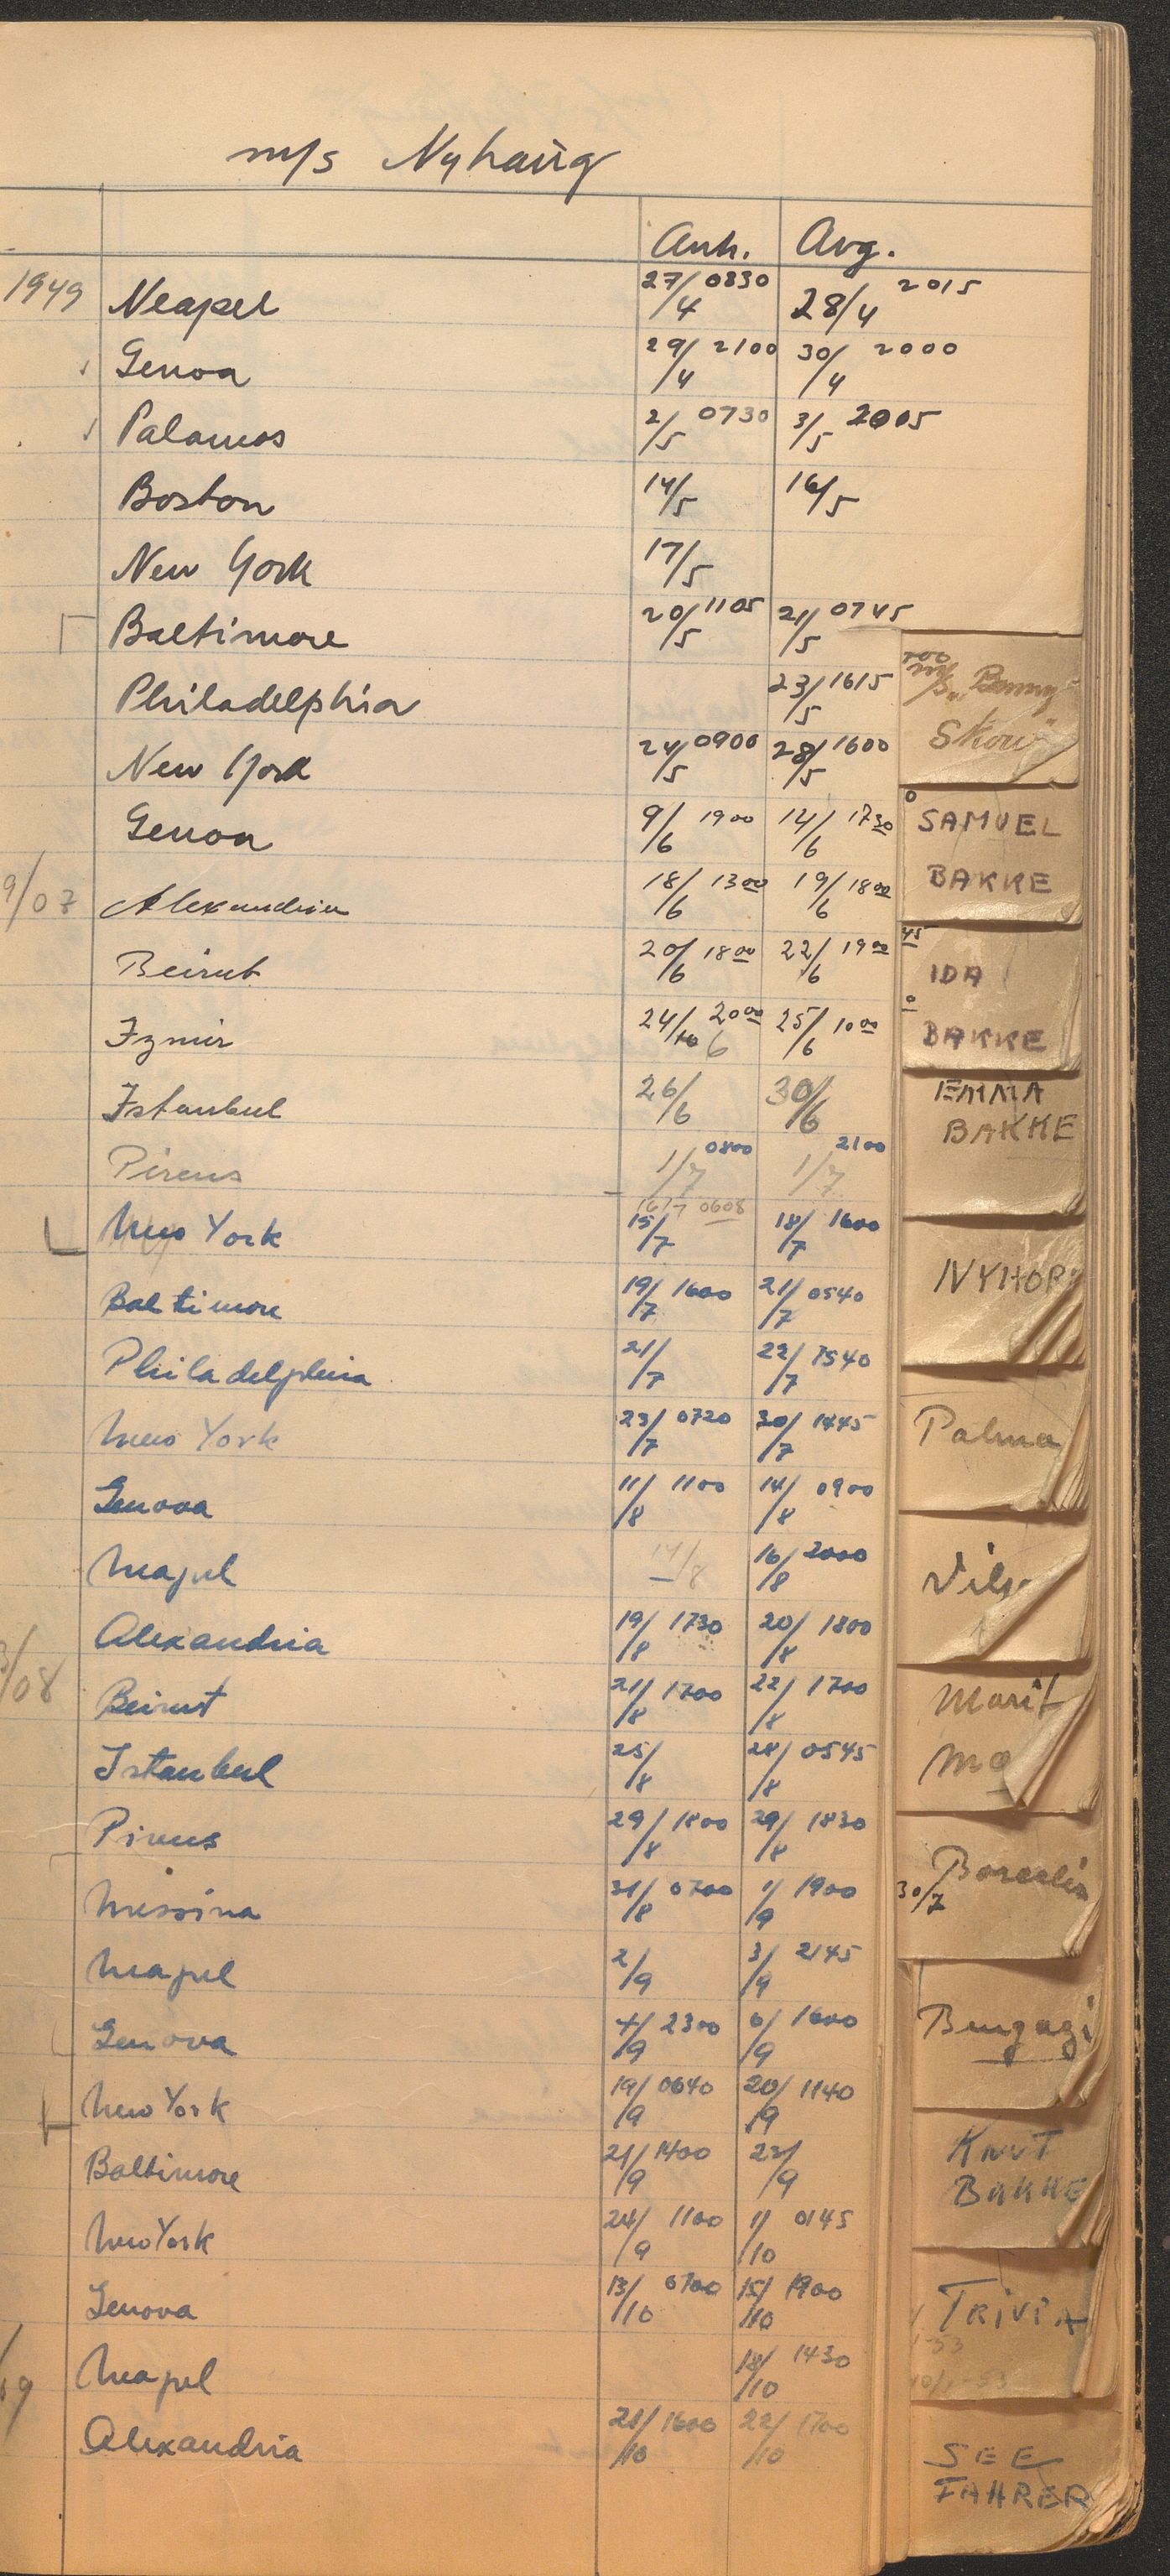 m/s Nyhaug
Ank. Avg.
1949 Neapel 27/4 0830 28/4 2015
Genoa 29/4 2100 30/4 2000
Palamos 2/5 0730 3/5 2005
Boston 14/5 16/5
New York 17/5
Baltimore 20/5 1105 21/5 0745
Philadelphia 23/5 1615
New York 24/5 0900 28/5 1600
Genoa 9/6 1900 14/6 1730
9/07 Alexandria 18/6 1300 19/6 1800
Beirut 20/6 1800 22/6 1900
Izmir 24/6 2000 25/6 1000
Istanbul 26/6 30/6
Pireus 1/7 0800 1/7 2100
16/7 0608
New York 15/7 18/7 1600
Baltimore 19/7 1600 21/7 0540
Philadelphia 21/7 22/7 1540
New York 23/7 0720 30/7 1445
Genova 11/8 1100 14/8 0900
Neapel 14/8 16/8 2000
Alexandria 19/8 1730 20/8 1800
/08 Beirut 21/8 1700 22/8 1700
Istanbul 25/8 28/8 0545
Pireus 29/8 1800 29/8 1830
Messina 31/8 0700 1/9 1900
Neapel 2/9 3/9 2145
Genova 4/9 2300 6/9 1600
New York 19/9 0640 20/9 1140
Baltimore 21/9 1400 22/9
New York 24/9 1100 1/10 0145
Genova 13/10 0700 15/10 1900
Neapel 18/10 1430
Alexandria 21/10 1600 22/10 1700
m/s "Benny
Skou"
SAMUEL
BAKKE
45
IDA
BAKKE
EMMA
BAKKE
NYHOR
Palma
Vils
Marit
Ma
30/7
Bengazi
KNUT
BAKKE
TRIVIA
SEE
FAHRER